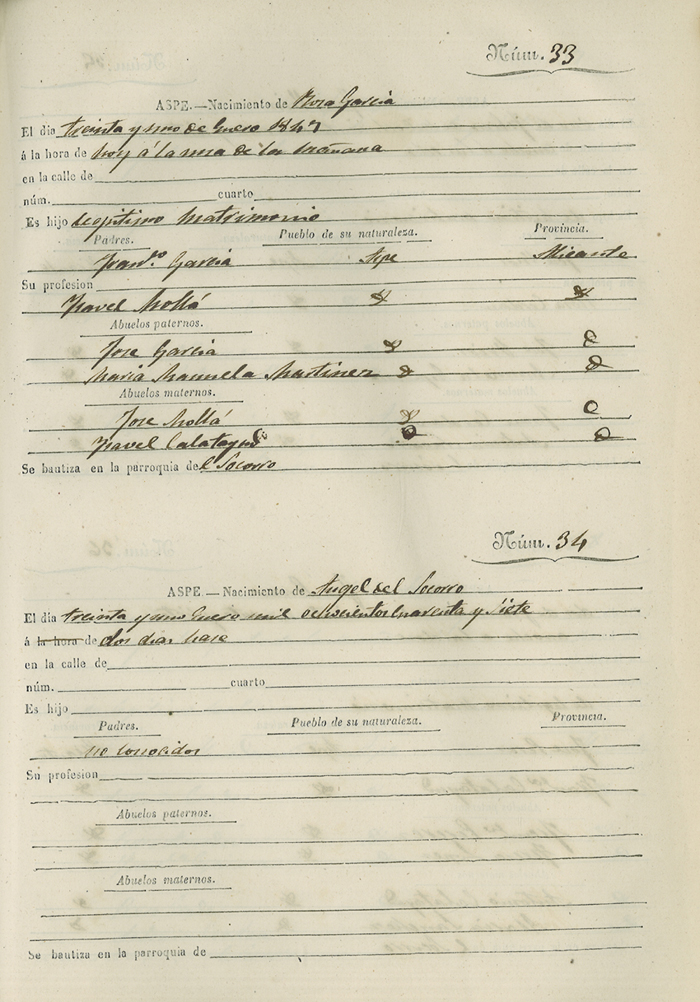 Núm. 33
ASPE.—Nacimiento de Rosa Garcia
El dia treinta y uno de Enero 1847
á la hora de hoy á la una de la mañana
en la calle de
núm. cuarto
Es hijo legitimo Matrimonio
Padres. Pueblo de su naturaleza. Provincia.
Fran.co Garcia Aspe Alicante
Su profesion
Ysavel Mollá
Abuelos paternos.
Jose Garcia
Maria Manuela Martinez
Abuelos maternos.
Jose Mollá
Ysavel Calatayud
Se bautiza en la parroquia del Socorro
Núm. 34
ASPE.—Nacimiento de Angel del Socorro
El dia treinta y uno Enero mil ochocientos cuarenta y siete
á la hora de dos dias hase
en la calle de
núm. cuarto
Es hijo
Padres. Pueblo de su naturaleza. Provincia.
no conocidos
Su profesion
Abuelos paternos.
Abuelos maternos.
Se bautiza en la parroquia de